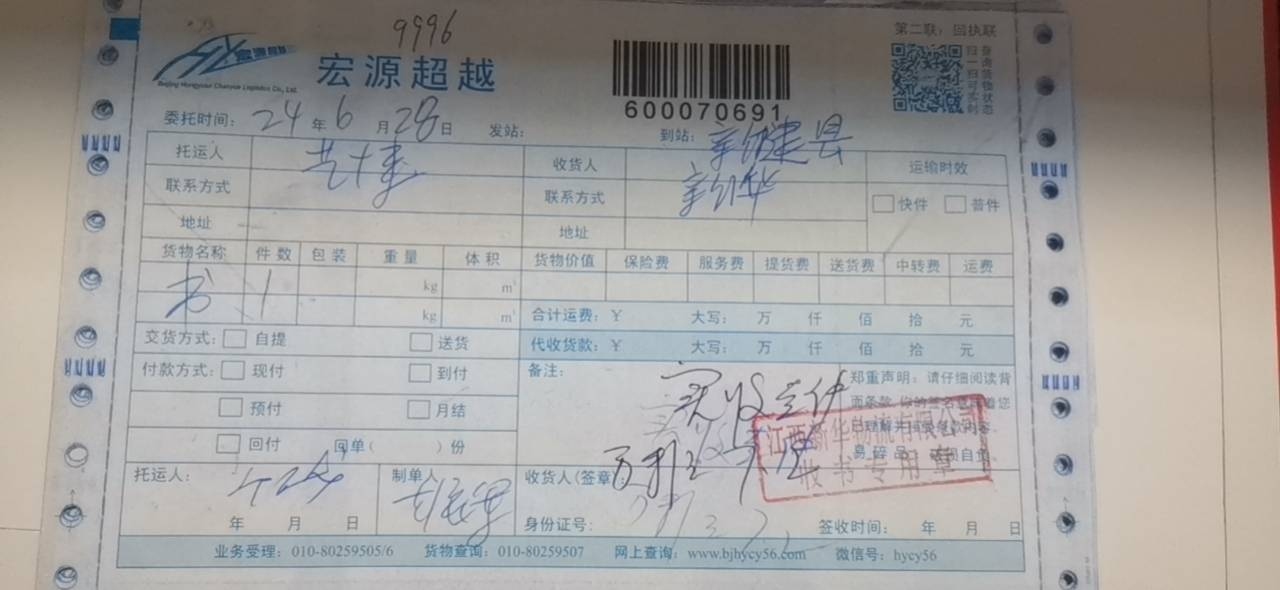 9996
第二联：回执联
宏源超越
Beijing Hongyuan Chaoyue Logistics Co., Ltd.
扫一扫可实时
查询货物状态
600070691
委托时间：24年6月28日 发站： 到站：新建县
托运人 收货人 新华 运输时效
联系方式 联系方式 快件 普件
地址 地址
货物名称 件数 包装 重量 体积 货物价值 保险费 服务费 提货费 送货费 中转费 运费
书 1 kg m³
kg m³ 合计运费：￥ 大写： 万 仟 佰 拾 元
交货方式： 自提 送货 代收货款：￥ 大写： 万 仟 佰 拾 元
付款方式： 现付 到付 备注： 实收 件 郑重声明：请仔细阅读背
预付 月结
回付 回单( )份
江西新华物流有限公司
收书专用章
托运人： 制单人 收货人(签章
年 月 日 身份证号： 签收时间： 年 月 日
业务受理：010-80259505/6 货物查询：010-80259507 网上查询：www.bjhycy56.com 微信号：hycy56